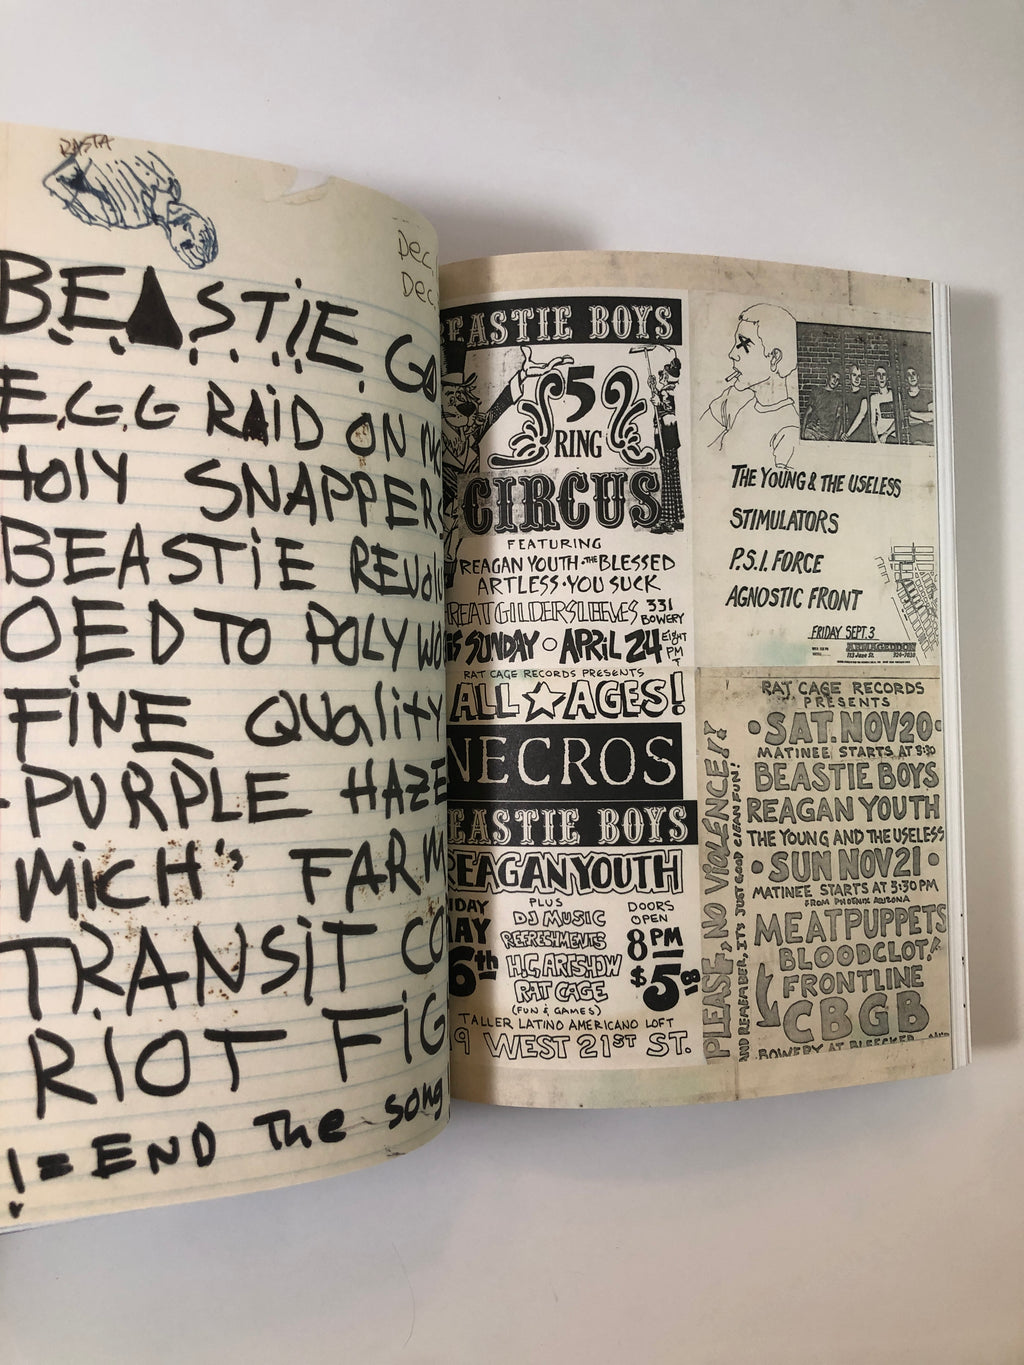 RASTA
Dec.
Dec.
BEASTIE
EGG RAID ON
HOLY SNAPPER
BEASTIE REVOL
OED TO POLY WO
FINE QUALITY
PURPLE HAZE
MICH" FARM
TRANSIT CO
RIOT FIG
!= END The song
EASTIE BOYS
5
RING
CIRCUS
FEATURING
REAGAN YOUTH • THE BLESSED
ARTLESS • YOU SUCK
REAT GILDERSLEEVES 331
BOWERY
IS SUNDAY • APRIL 24 EIGHT
PM
RAT CAGE RECORDS PRESENTS
ALL ★ AGES!
NECROS
EASTIE BOYS
REAGAN YOUTH
IDAY
AY
6th
PLUS
DJ MUSIC
REFRESHMENTS
H.C. ARTSHOW
RAT CAGE
(FUN & GAMES)
DOORS
OPEN
8 PM
$5
TALLER LATINO AMERICANO LOFT
9 WEST 21ST ST.
THE YOUNG & THE USELESS
STIMULATORS
P.S.I. FORCE
AGNOSTIC FRONT
FRIDAY SEPT. 3
ARMAGEDDON
RAT CAGE RECORDS
PRESENTS
• SAT. NOV 20 •
MATINEE STARTS AT 3:30
BEASTIE BOYS
REAGAN YOUTH
THE YOUNG AND THE USELESS
• SUN NOV 21 •
MATINEE STARTS AT 3:30 PM
FROM PHOENIX ARIZONA
MEAT PUPPETS
BLOODCLOT!
FRONTLINE
CBGB
BOWERY AT BLEECKER
PLEASE, NO VIOLENCE!!
AND REMEMBER, IT'S JUST GOOD CLEAN FUN!